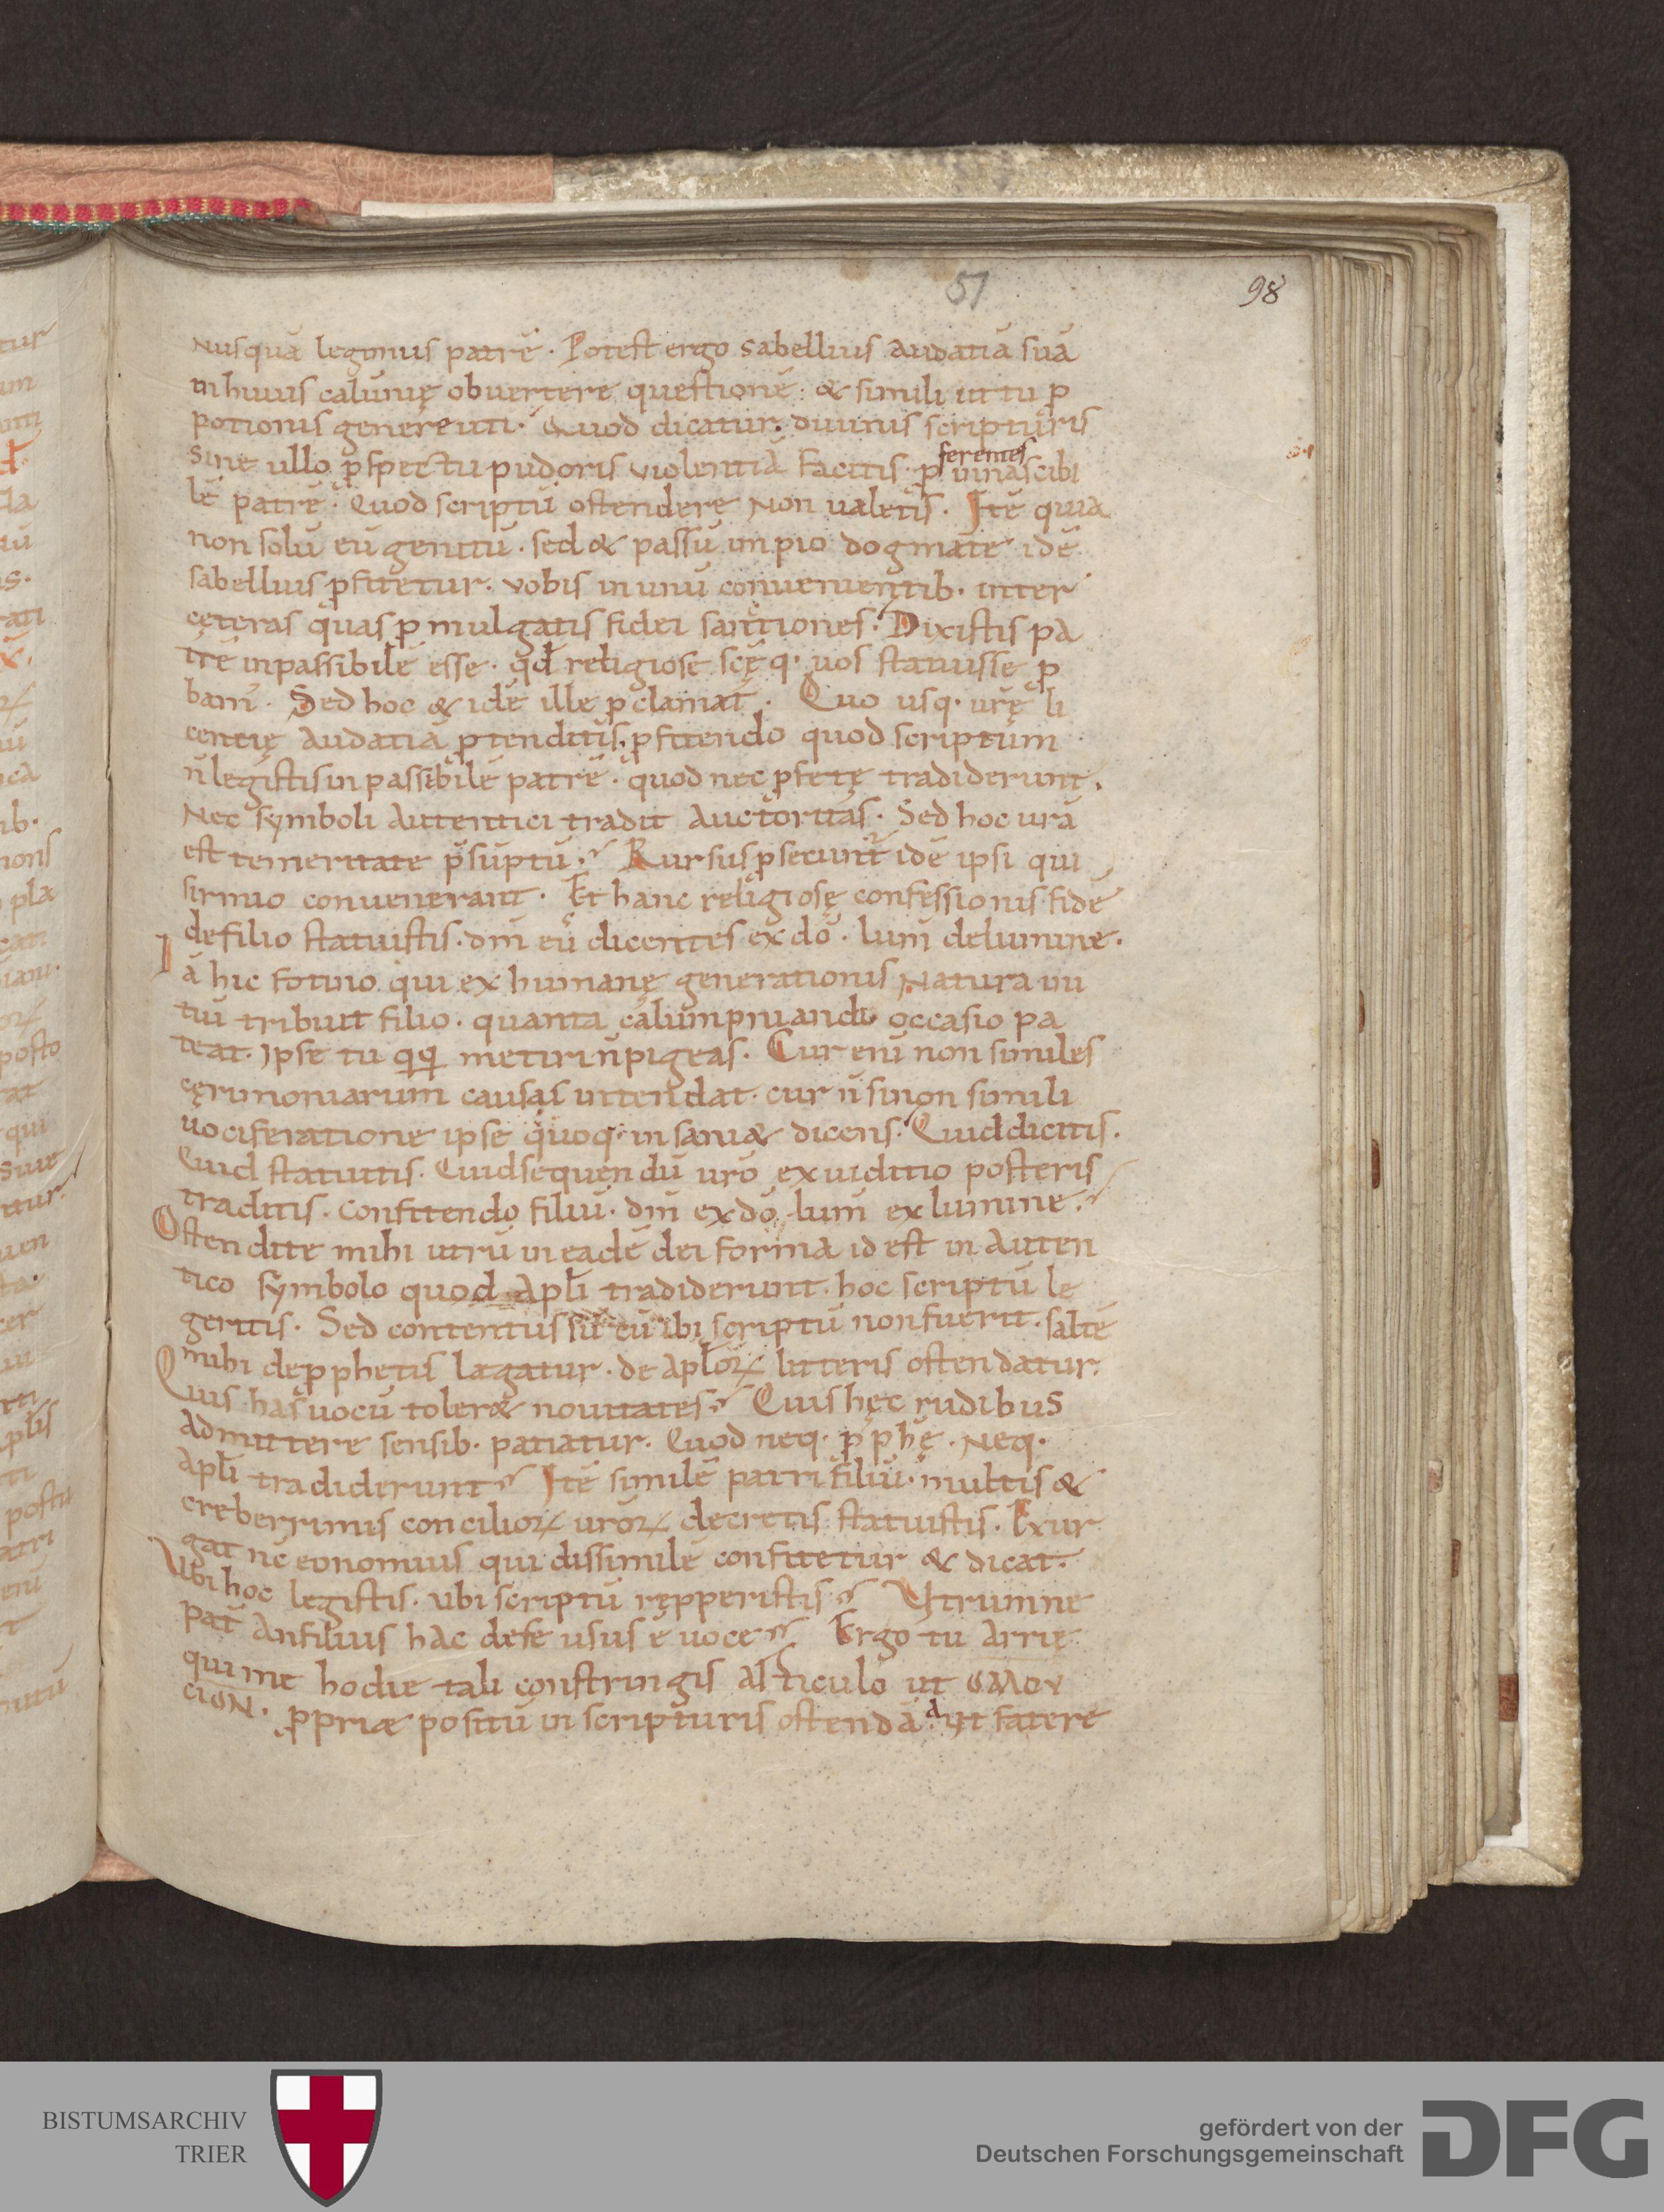 51
98
nusquā legimus patrē. Potest ergo sabellius audatiā suā
in huius calūnię obvertere questionē. & simili ut tu p
positionis genere uti. Quod dicatur. diuinis scripturis
sine ullo pspectu pudoris violentiā facitis. p ferentes innascibi
lē patrē. Quod scriptū ostendere non ualetis. Itē quia
non solū eū genitū. sed & passū impio dogmate idē
sabellius pfitetur. vobis in unū convenientib. inter
cęteras quas pmulgatis fidei sanctiones. Dixistis pa
trē inpassibilē esse. qđ religiose scęq. uos statuisse p
bam̄. Sed hoc & idē ille pclamat. Quo usq. urę li
centię audatiā ptenditis. pfitendo quod scriptum
n̄ legistis inpassibilē patrē. quod nec pfetę tradiderunt.
Nec symboli autentici tradit auctoritas. Sed hoc urā
est temeritate p̄sūptū. Rursus psecunt idē ipsi qui
sirmio convenerant. Et hanc religiosę confessionis fidē
de filio statuistis. dm̄ eū dicentes ex dō. lum̄ de lumine.
Iā hic fotino qui ex humanę generationis natura ini
tiū tribuit filio. quanta calumpniandi occasio pa
teat. Ipse tu qq metiri n̄ pigeas. Cur enī non similes
cęrimoniarum causas intendat. cur n̄ sinon simili
uociferatione ipse quoq. insani& dicens. Quid dicitis.
Quid statuitis. Quid sequendū urō ex uiditio posteris
traditis. confitendo filiū. dm̄ ex dō lum̄ ex lumine.
Ostendite mihi utrū in eadē dei forma id est in auten
tico symbolo quod apłi tradiderunt. hoc scriptū le
geritis. Sed contentus sū cū ibi scriptū non fuerit. saltē
mihi de pphetis lægatur. de apłoꝝ litteris ostendatur.
Quis has uocū toler& nouitates. Quis hęc rudibus
admittere sensib. patiatur. Quod neq. pphę. neq.
apłi tradiderunt. Itē similē patri filiū. multis &
creberrimis concilioꝝ uroꝝ decretis statuistis. Exur
gat nc̄ eonomius qui dissimilē confitetur & dicat.
Ubi hoc legistis. ubi scriptū repperistis. Utrumne
pat̄ an filius hac de se usus ē uoce. Ergo tu arrie
qui me hodie tali constringis articulo ut OMOY
CION. ppriæ positū in scripturis ostendā. ut fatere
BISTUMSARCHIV
TRIER
gefördert von der
Deutschen Forschungsgemeinschaft
DFG